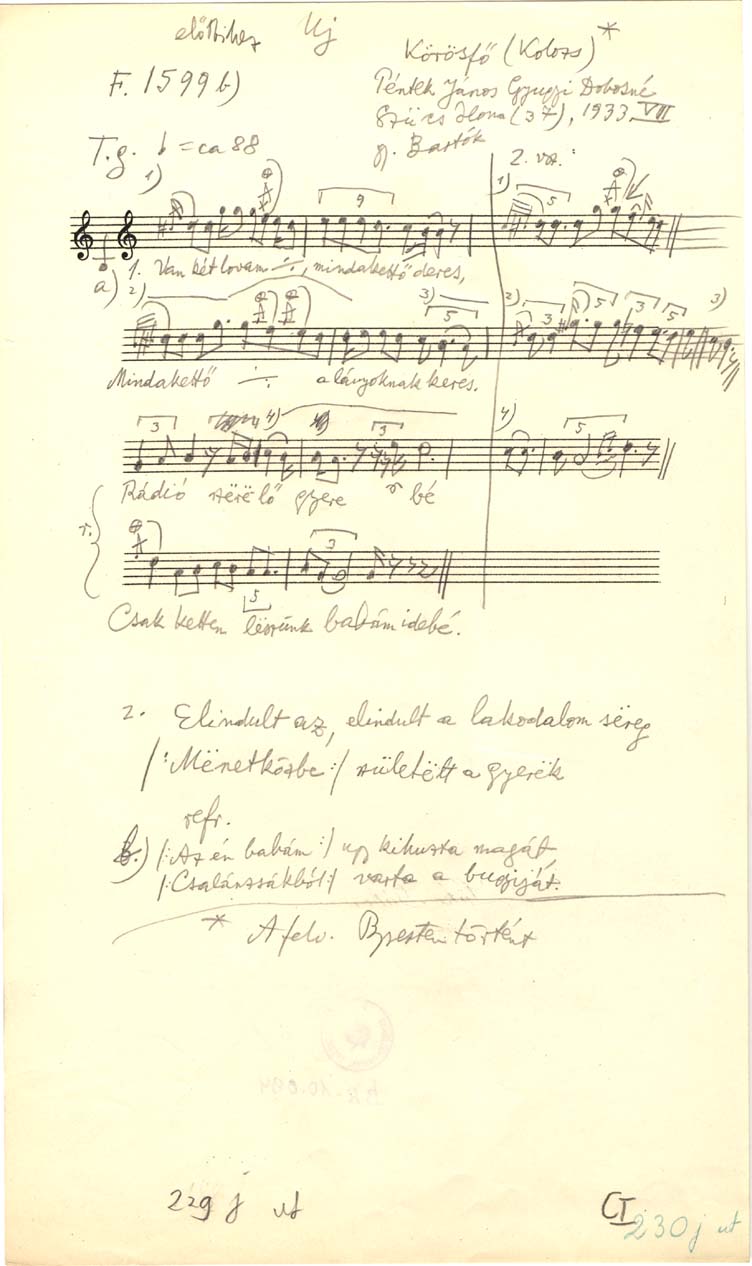 előttihez Uj
F. 1599 b)
Körösfő (Kolozs) *
Péntek János Gyugyi Dobosné
Szűcs Ilona (37), 1933. VII
gy. Bartók
T.g. = ca 88
2. vsz.
1) 9 1) 5
a) 1. Van két lovam ·/·, mindakettő deres,
2) 3) 5 2) 3 5 3 5 3)
Mindakettő ·/· a lányoknak keres.
3 4) 3 4) 5
Rádió szërëlő gyere bé
r. 3 5
Csak ketten lëszünk babám idebé.
2. Elindult az, elindult a lakodalom sëreg
/:Mënetközbe:/ születëtt a gyerëk
refr.
b.) /:Az én babám:/ ugy kihuzta magát
/:Csalánzsákból:/ varta a bugyiját.
* A felv. Bpesten történt
229 j ut
CI
230 j ut